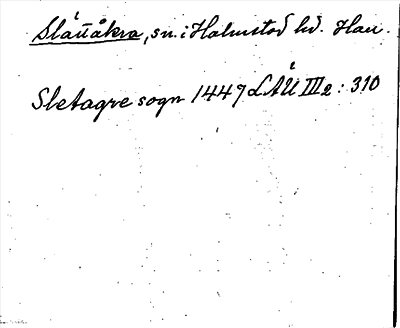 Slättåkra, sn. i Halmstad hd. Hall.
Sletagre sogn 1447 LÅU III2: 310